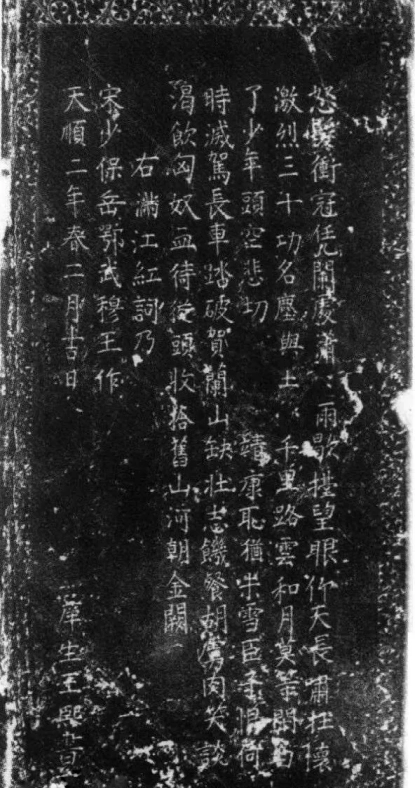 怒髮衝冠凭闌處瀟〻雨歇擡望眼仰天長嘯壯懷
激烈三十功名塵與土八千里路雲和月莫等閑白
了少年頭空悲切 靖康恥猶未雪臣子恨何
時滅駕長車踏破賀蘭山缺壯志饑餐胡虜肉笑談
渴飲匈奴血待從頭收拾舊山河朝金闕
右滿江紅詞乃
宋少保岳鄂武穆王作
天順二年春二月吉日 庠生王熙書